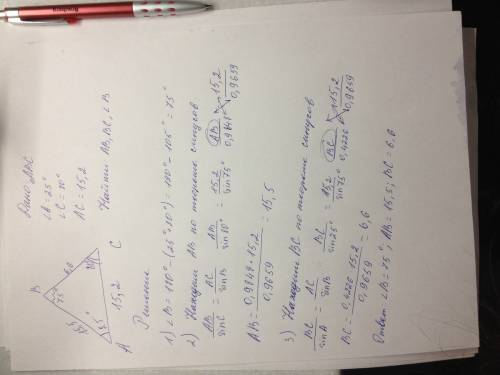 Дано ΔABC
∠A = 25°
∠C = 80°
AC = 15,2
Найти AB, BC, ∠B
B
75°
15,5
6,6
25°
80°
A 15,2 C
Решение
1) ∠B = 180° - (25° + 80°) = 180° - 105° = 75°
2) Находим AB по теореме синусов
AB/sinC = AC/sinB AB/sin80° = 15,2/sin75° AB/0,9848 = 15,2/0,9659
AB = 0,9849 · 15,2/0,9659 = 15,5
3) Находим BC по теореме синусов
BC/sinA = AC/sinB BC/sin25° = 15,2/sin75° BC/0,4226 = 15,2/0,9659
BC = 0,4226 · 15,2/0,9659 = 6,6
Ответ ∠B = 75°; AB = 15,5; BC = 6,6